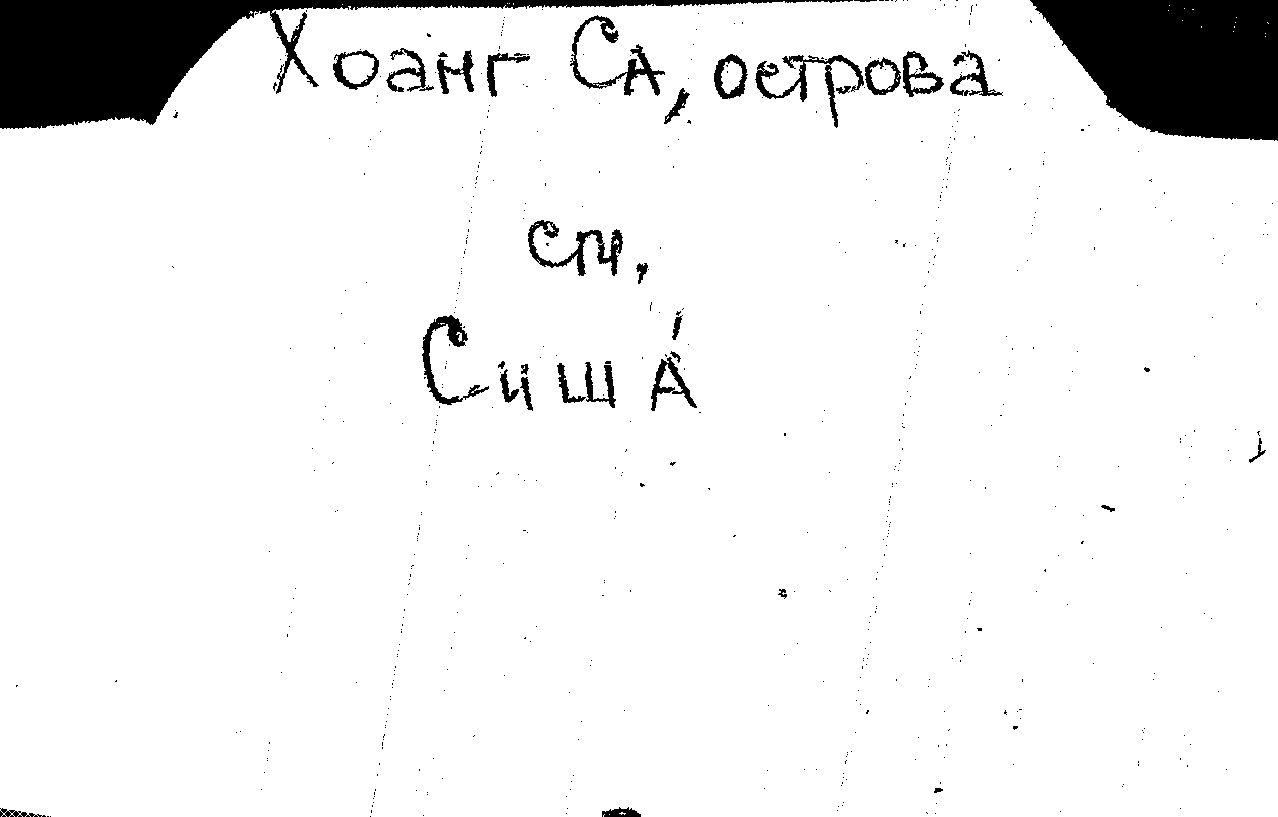 Хоанг Са, острова
см.
Сиша́